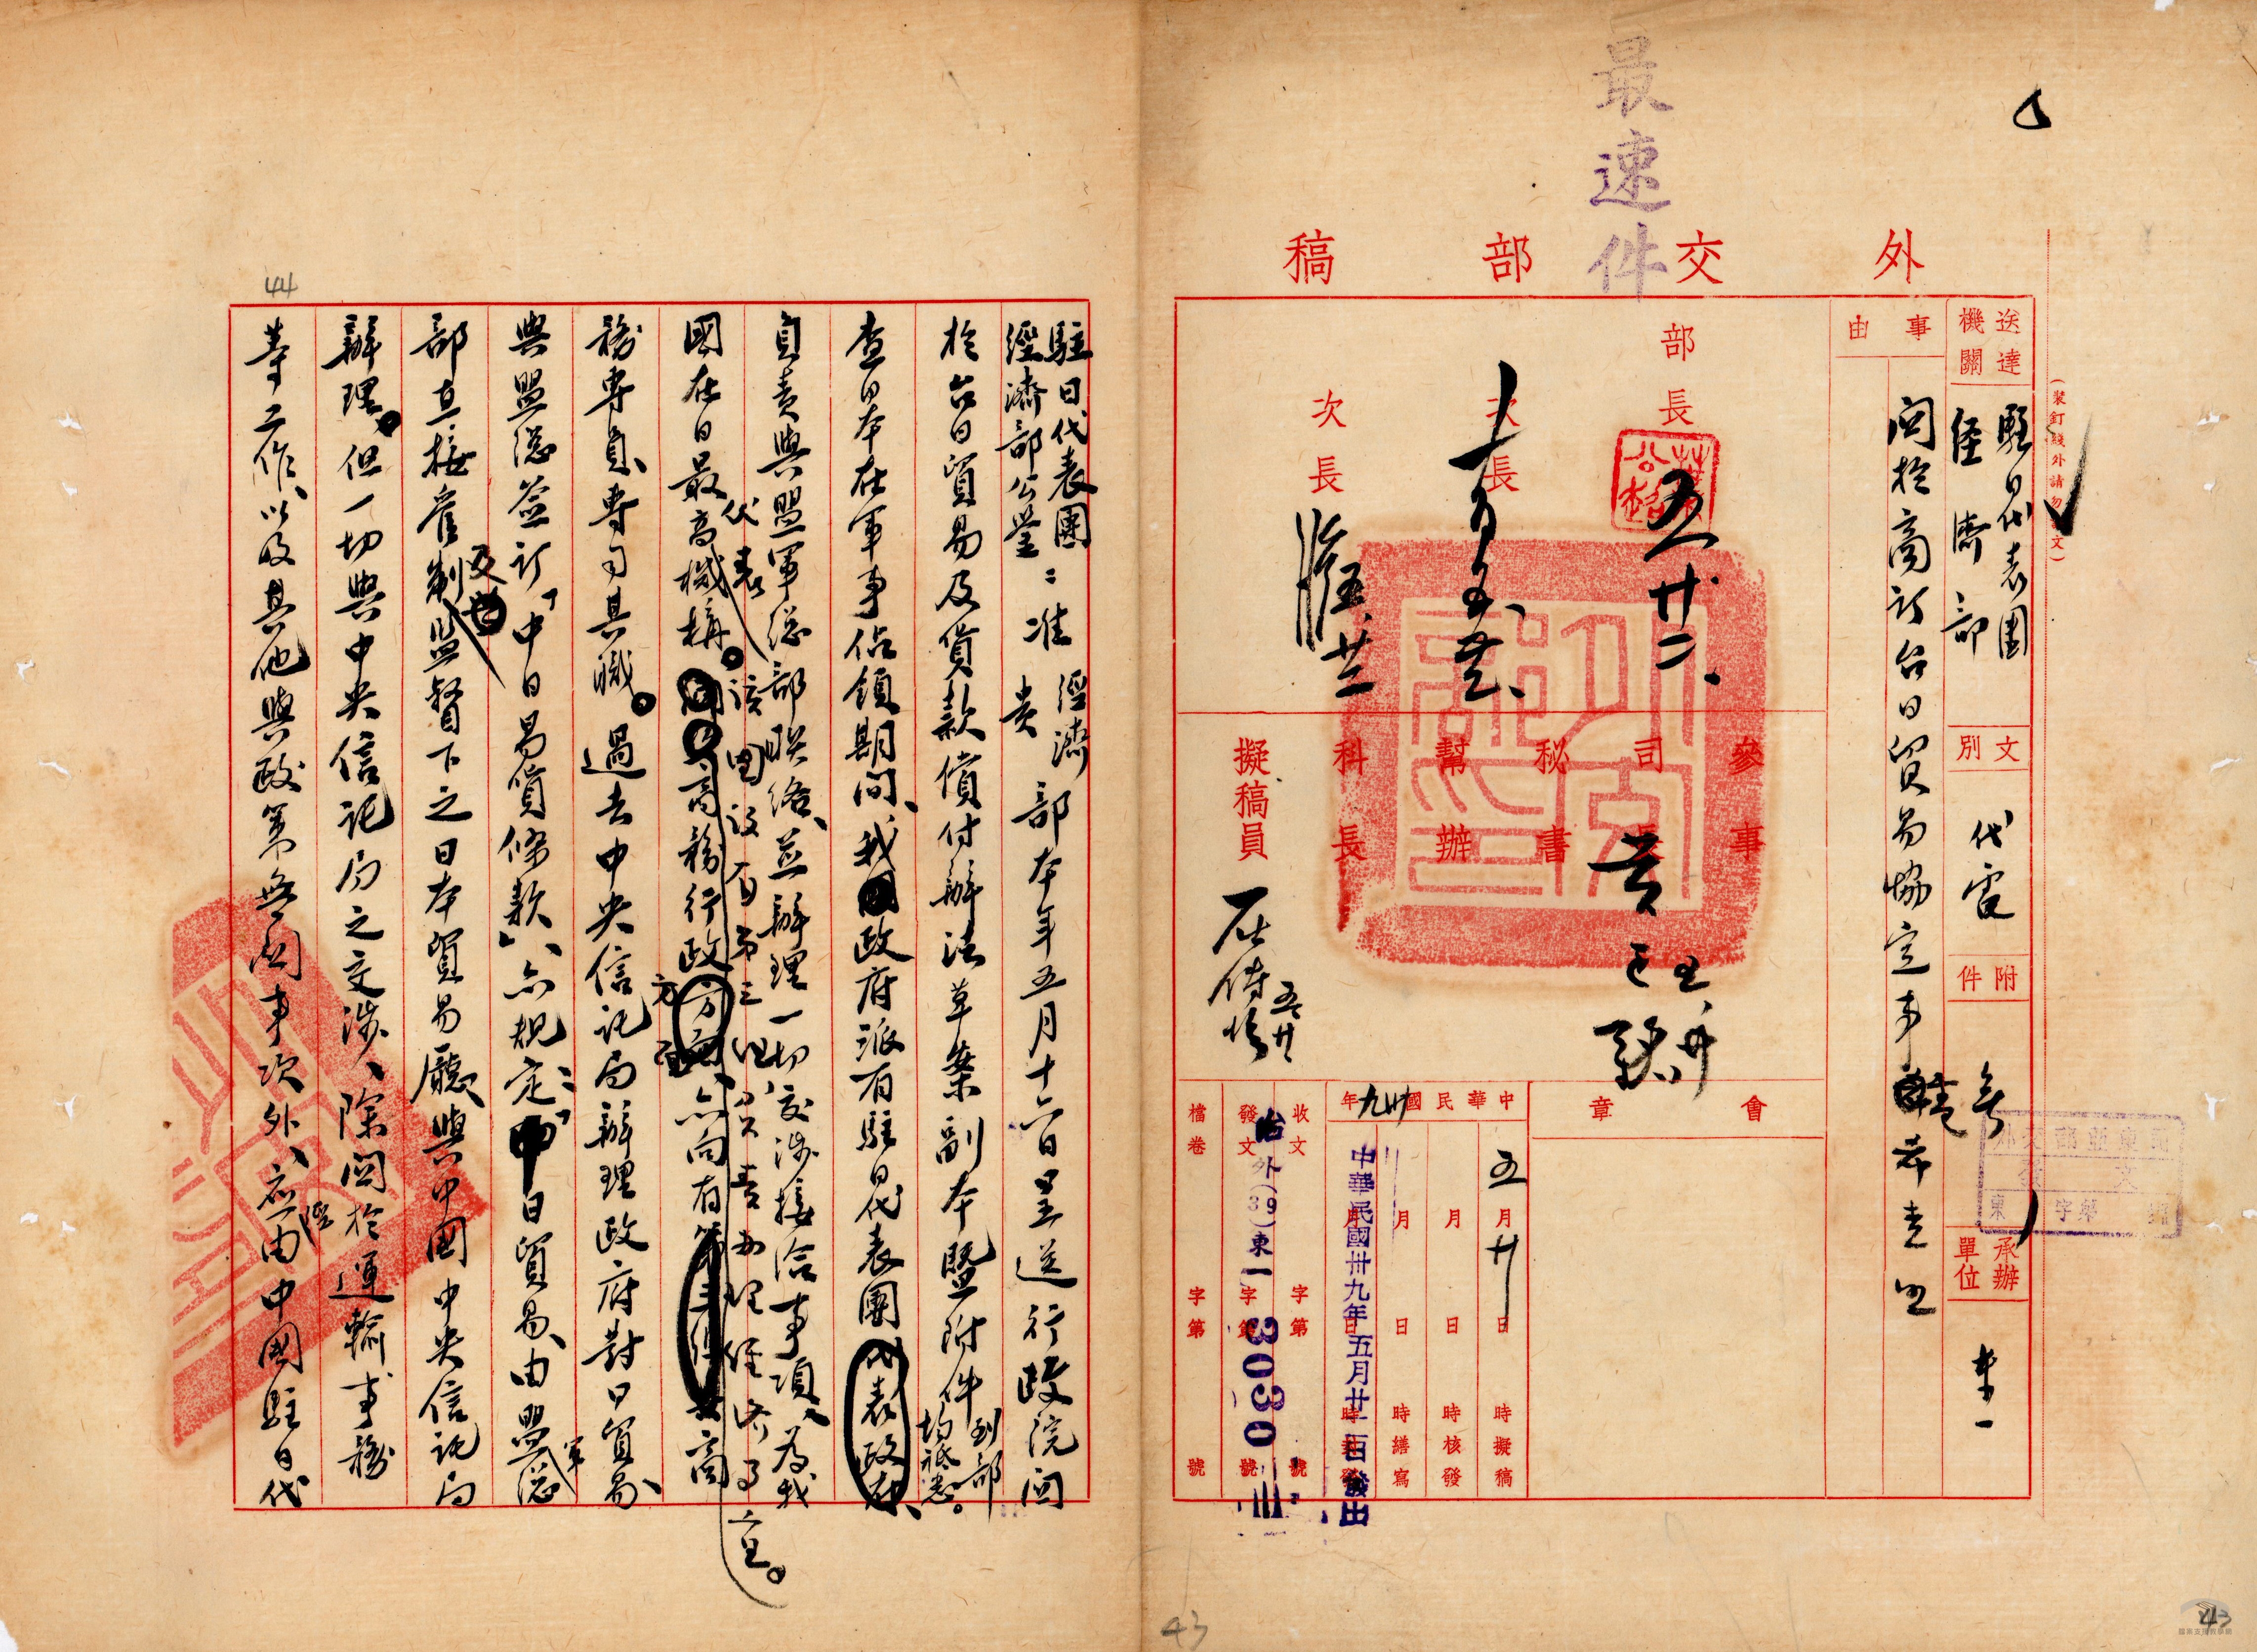 最速件
外交部稿
(裝釘線外請勿書文)
送達機關
駐日代表團
經濟部
文別
代電
附件
無
承辦單位
東一
事由
關於商訂台日貿易協定事
希查照
部長
五 廿二
次長
次長
參事
司長
秘書
幫辦
科長
擬稿員
會章
中華民國卅九年
五月廿日時擬稿
月日時核發
月日時繕寫
中華民國卅九年五月廿二日發出
收文 字第 號
發文 字第 號
外(39)東一
3030
檔卷 字第 號
43
43
44
駐日代表團
經濟部公鑒:准
經濟
貴
部本年五月十六日呈送行政院關
於台日貿易及貨款償付辦法草案副本暨附件
到部
均祗悉。
查日本在軍事佔領期間、我政府派有駐日代表團
代表政府、
負責與盟軍總部聯絡、並辦理一切交涉接洽事項、為我
國在日最高
代表
機構。
該團設有第三組、負責辦理經濟事宜。
商務行政
方面、
亦向有
商
務專員、專司其職。過去中央信託局辦理政府對日貿易、
與盟總簽訂「中日易貨條款」、亦規定:「中日貿易、由盟
軍
總
部直接管制
及
監督下之日本貿易廳與中國中央信託局
辦理。但一切與中央信託局之交涉、除關於運輸事務
等工作、以及其他與政策無關事次外、應
經
由中國駐日代